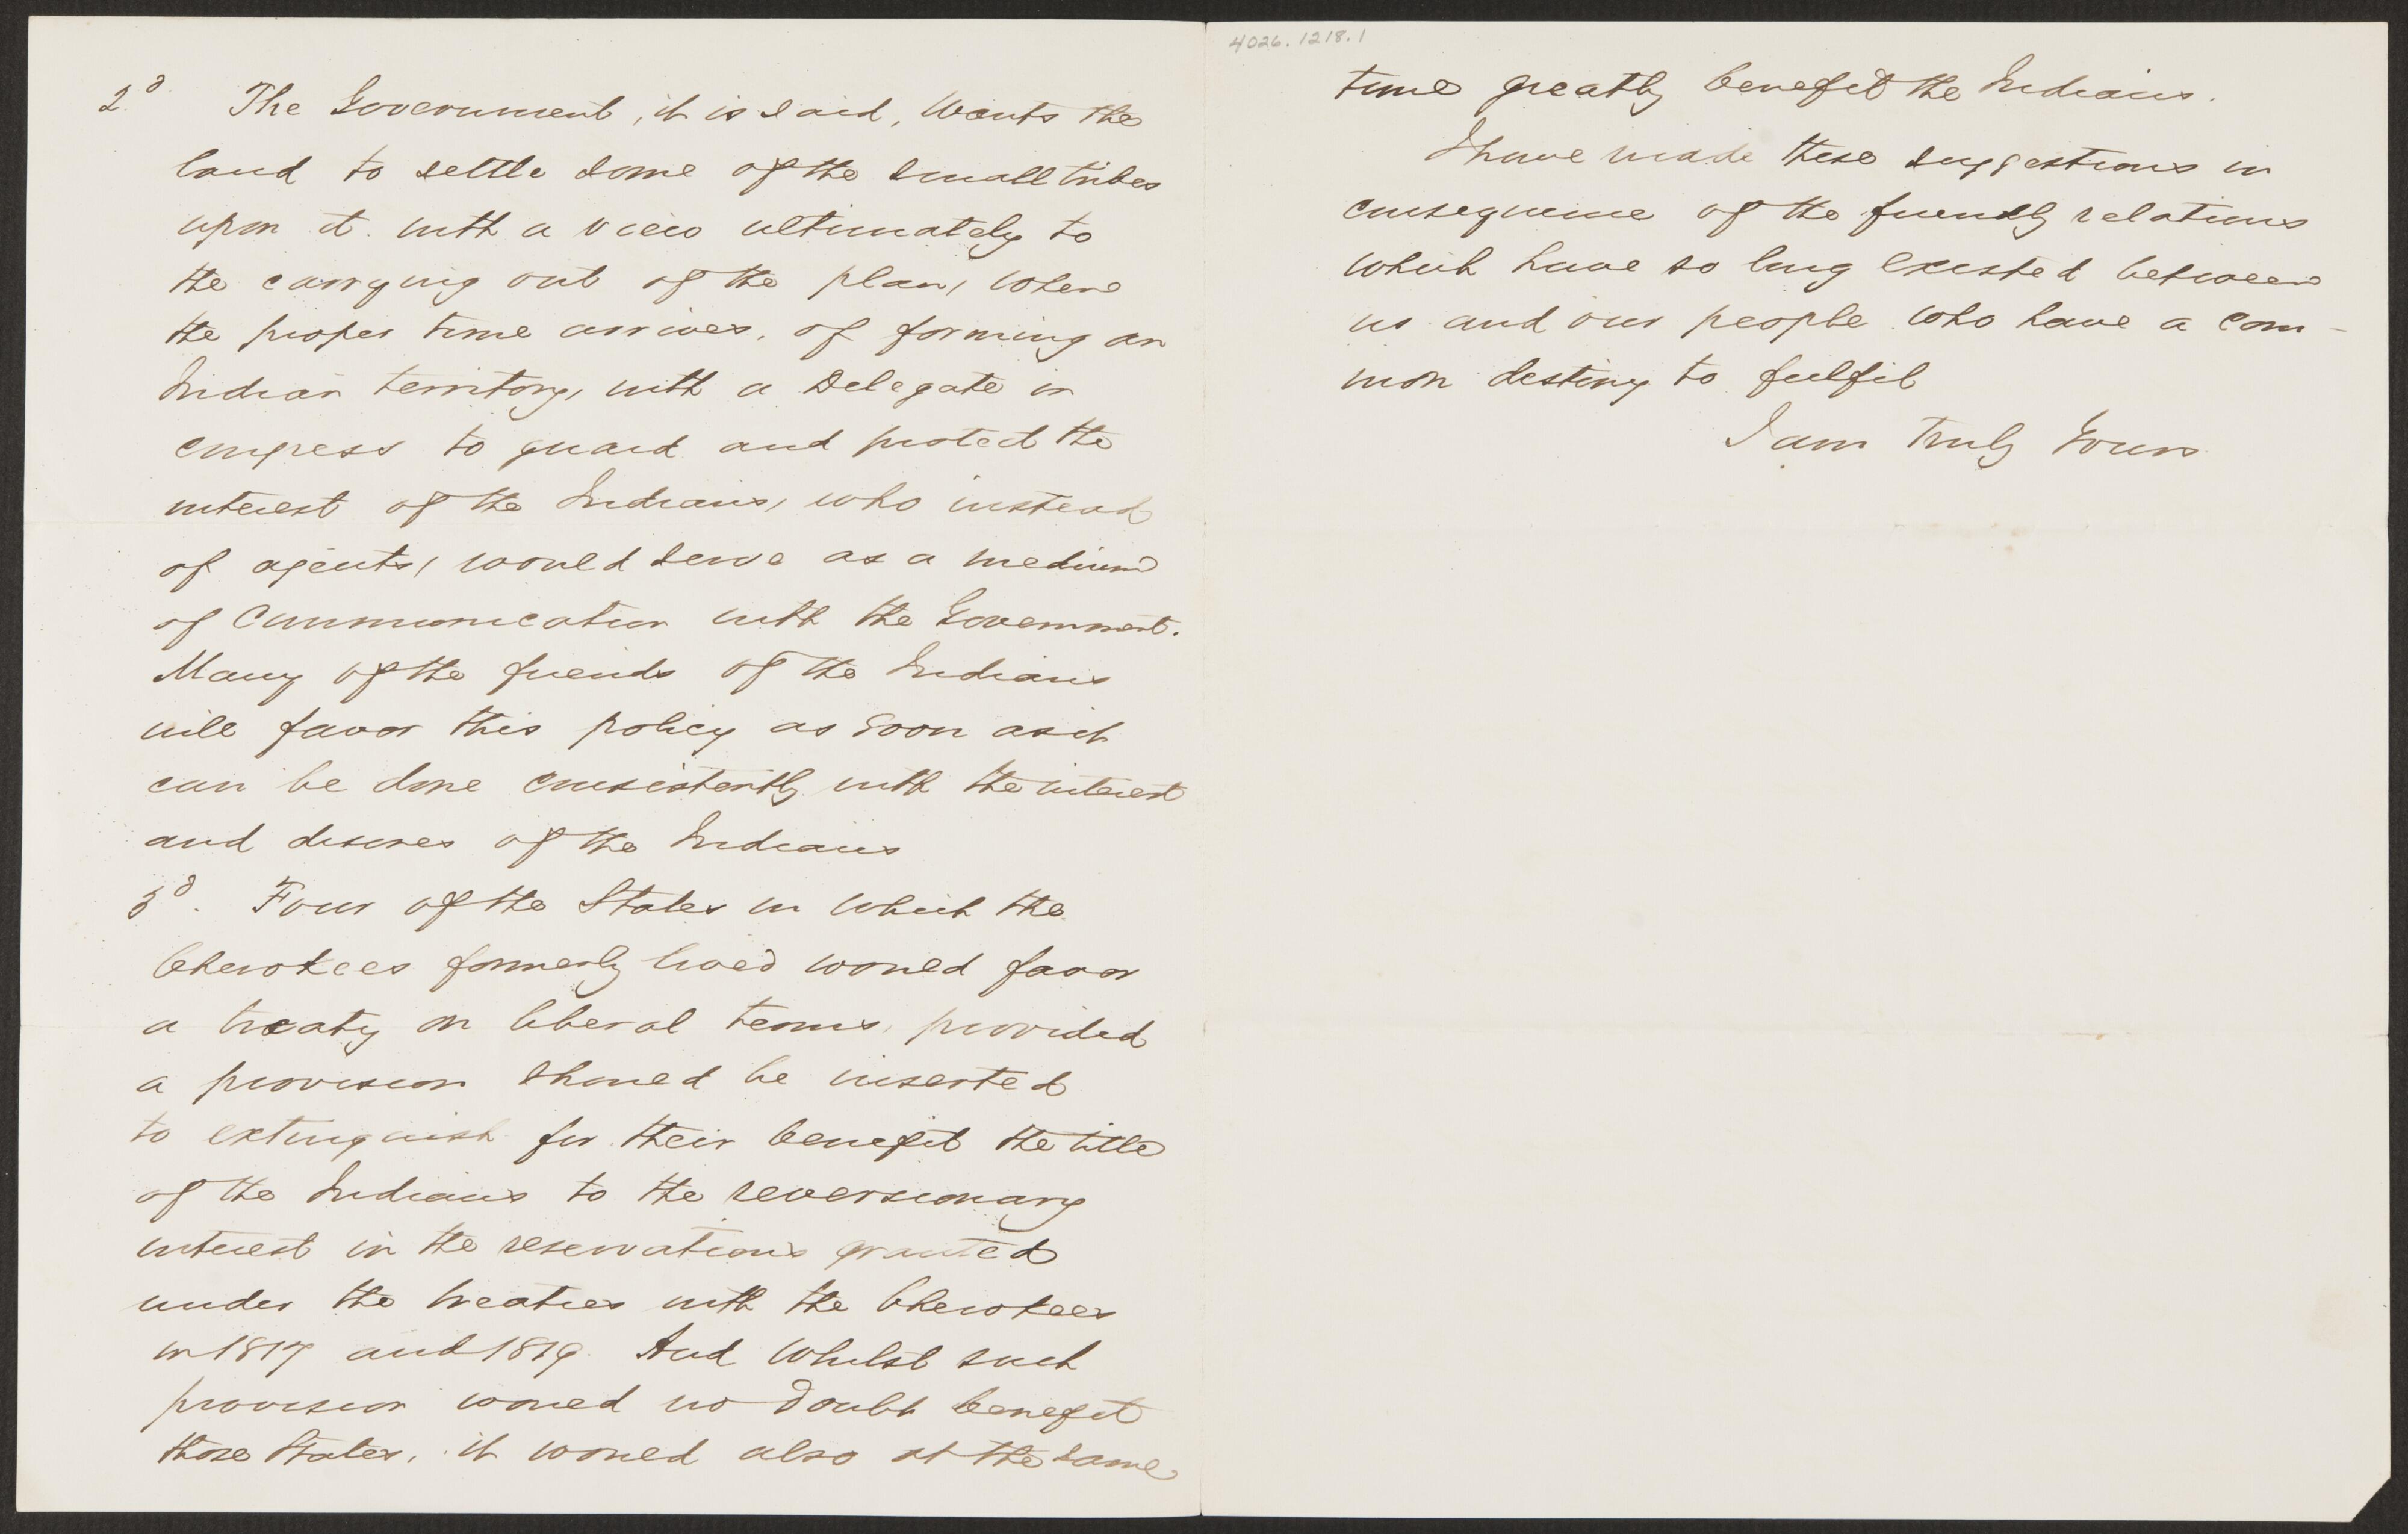 2d The Government, it is said, wants the
land to settle some of the small tribes
upon it. with a view ultimately to
the carrying out of the plan, when
the proper time arrives, of forming an
Indian territory, with a Delegate in
congress to guard and protect the
interest of the Indians, who instead
of agents, would serve as a medium
of Communication with the Government.
Many of the friends of the Indians
will favor this policy as soon as it
can be done consistently with the interest
and desires of the Indians
3d. Four of the States in which the
Cherokees formerly lived would favor
a treaty on liberal terms, provided
a provision should be inserted
to extinguish for their benefit the title
of the Indians to the reversionary
interest in the reservations granted
under the treaties with the Cherokees
in 1817 and 1819. And whilst such
provision would no doubt benefit
those States, it would also at the same
4026.1218.1
time greatly benefit the Indians.
I have made these suggestions in
consequence of the friendly relations
which have so long existed between
us and our people who have a com-
mon destiny to fulfil
I am Truly Yours